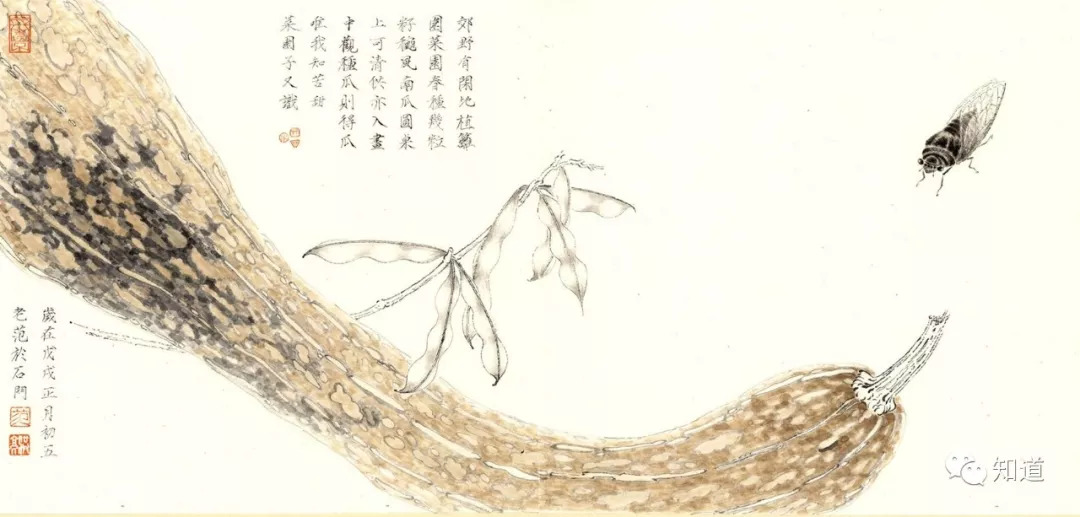 郊野有閑地植籬
園菜園春種幾粒
籽穐見南瓜圓果
上可清供亦入畫
中觀種瓜則得瓜
惟我知苦甜
菜園子又識
歲在戊戌正月初五
老范於石門
知道